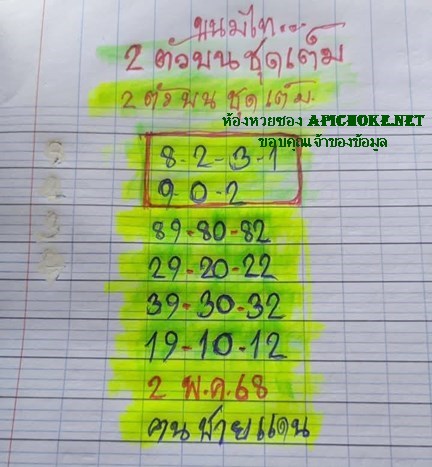 ขนมไท...
2 ตัวบน ชุดเต็ม
2 ตัวบน ชุดเต็ม.
ห้องหวยซอง APICHOKE.NET
ขอบคุณเจ้าของข้อมูล
8-2-3-1
9-0-2
89-80-82
29-20-22
39-30-32
19-10-12
2 พ.ค.68
คนชายแดน